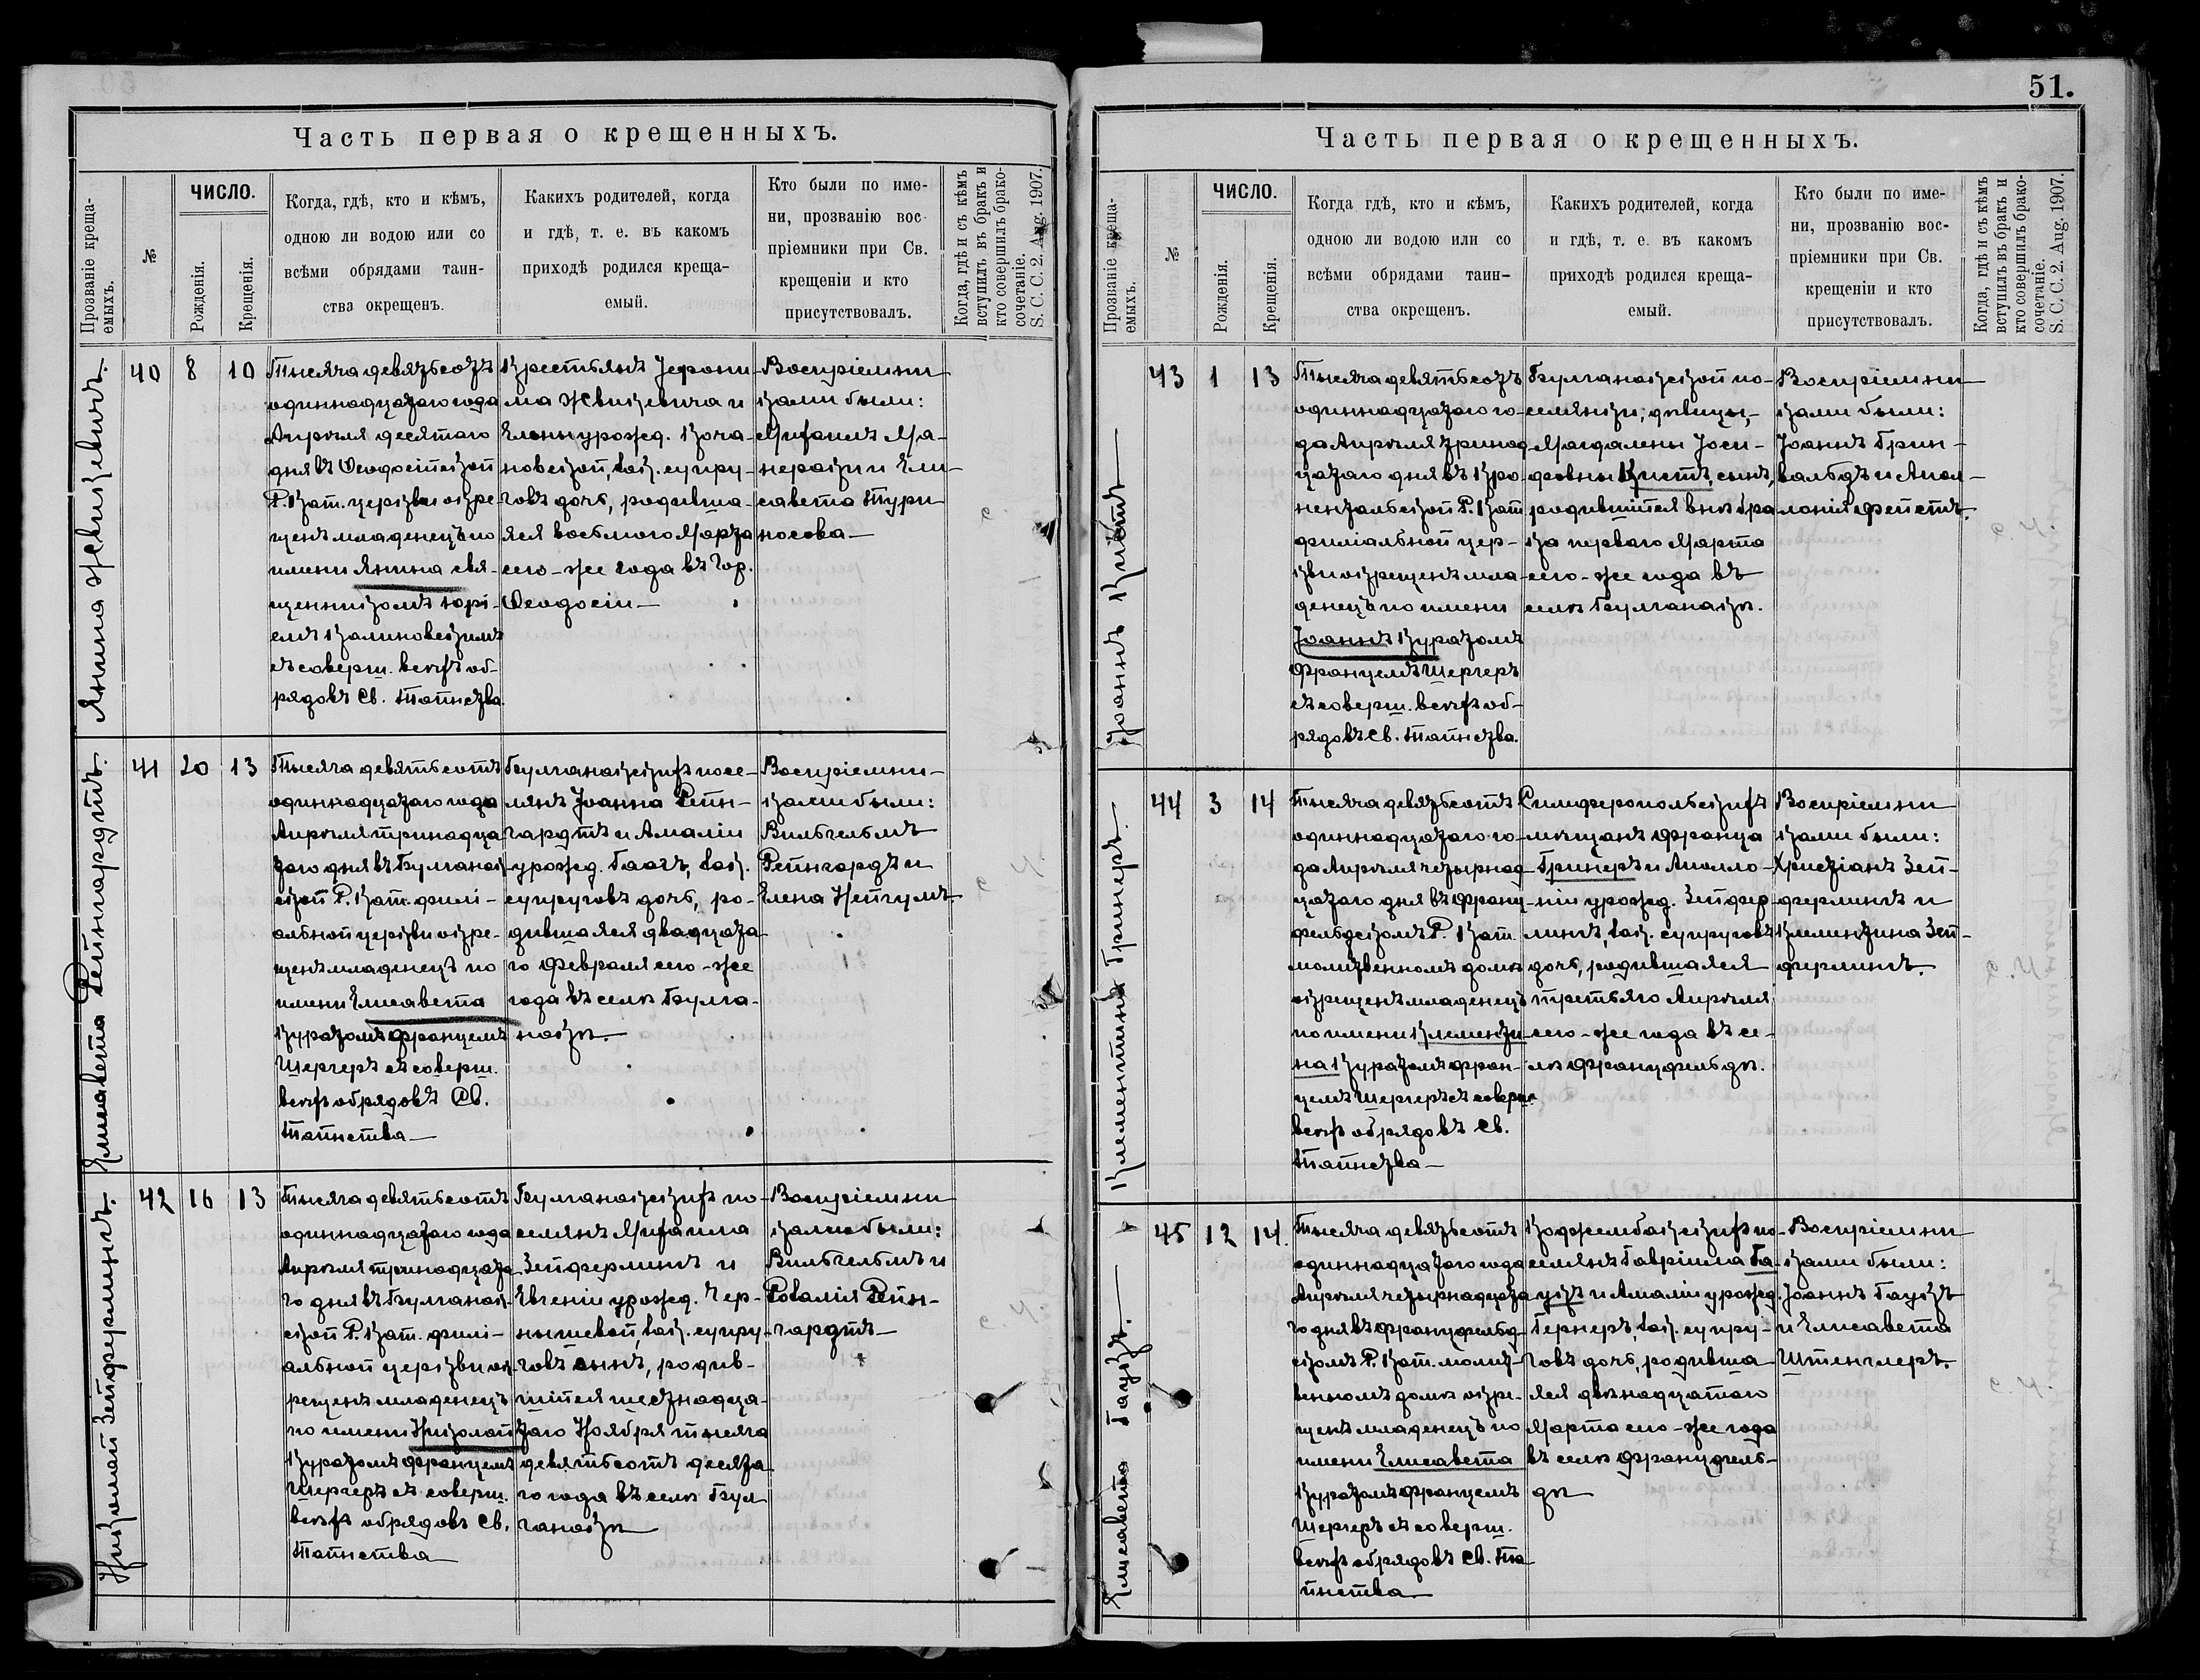 51.
Часть первая о крещенныхъ.
Прозваніе креща-
емыхъ.
№
ЧИСЛО.
Рожденія.
Крещенія.
Когда, гдѣ, кто и кѣмъ,
одною ли водою или со
всѣми обрядами таин-
ства окрещенъ.
Какихъ родителей, когда
и гдѣ, т. е. въ какомъ
приходѣ родился креща-
емый.
Кто были по име-
ни, прозванію вос-
пріемники при Св.
крещеніи и кто
присутствовалъ.
Когда, гдѣ и съ кѣмъ
вступилъ въ бракъ и
кто совершилъ брако-
сочетаніе.
S. C. C. 2. Aug. 1907.
Янина
40
8
10
Тысяча девятьсотъ
одиннадцатого года
Апрѣля десятаго
дня въ Ѳеодосійской
Р. Кат. церкви окре-
щенъ младенецъ по
имени Янина свя-
щенникомъ Юрі-
емъ Калиновскимъ
съ соверш. всѣхъ об-
рядовъ Св. Таинства.
Крестьянъ Іерони-
ма и
Елены урожд. Коча-
новской, зак. супру-
говъ дочь, родивша-
яся восьмого Марта
сего-же года въ гор.
Ѳеодосіи
Воспріемни-
ками были:
Михаилъ Ма-
и Ели-
савета
Елисавета Рейнгардтъ.
41
20
13
Тысяча девятьсотъ
одиннадцатаго года
Апрѣля тринадца-
таго дня въ Булганак-
ской Р. Кат. филі-
альной церкви окре-
щенъ младенецъ по
имени Елисавета
куратомъ Францемъ
Шерреръ съ соверш.
всѣхъ обрядовъ Св.
Таинства
Булганакскихъ посе-
лянъ Іоанна Рейн-
гардтъ и Амаліи
урожд. Гаагъ, зак.
супруговъ дочь, ро-
дившаяся двадцата-
го Февраля сего-же
года въ селѣ Булга-
накѣ.
Воспріемни-
ками были:
Вильгельмъ
Рейнгардъ и
Елена
Николай Зейферлингъ.
42
16
13
Тысяча девятьсотъ
одиннадцатаго года
Апрѣля тринадцата-
го дня въ Булганак-
ской Р. Кат. филі-
альной церкви ок-
рещенъ младенецъ
по имени Николай
куратомъ Францемъ
Шерреръ съ соверш.
всѣхъ обрядовъ Св.
Таинства
Булганакскихъ по-
селянъ Михаила
Зейферлингъ и
Евгеніи урожд. Чер-
нышевой, зак. супру-
говъ сынъ, родив-
шійся шестнадца-
таго Ноября тысяча
девятьсотъ десята-
го года въ селѣ Бул-
ганакѣ
Воспріемни-
ками были:
Вильгельмъ и
Розалія Рейн-
гардтъ
Часть первая о крещенныхъ.
Прозваніе креща-
емыхъ.
№
ЧИСЛО.
Рожденія.
Крещенія.
Когда гдѣ, кто и кѣмъ,
одною ли водою или со
всѣми обрядами таин-
ства окрещенъ.
Какихъ родителей, когда
и гдѣ, т. е. въ какомъ
приходѣ родился креща-
емый.
Кто были по име-
ни, прозванію вос-
пріемники при Св.
крещеніи и кто
присутствовалъ.
Когда, гдѣ и съ кѣмъ
вступилъ въ бракъ и
кто совершилъ брако-
сочетаніе.
S. C. C. 2. Aug. 1907.
Іоаннъ Кистъ
43
1
13
Тысяча девятьсотъ
одиннадцатаго го-
да Апрѣля тринад-
цатаго дня въ Кро-
нентальской Р. Кат.
филіальной цер-
кви окрещенъ мла-
денецъ по имени
Іоаннъ куратомъ
Францемъ Шерреръ
съ соверш. всѣхъ об-
рядовъ Св. Таинства.
Булганакской по-
селянки, дѣвицы,
Магдалены Іоси-
фовны Кистъ, сынъ,
родившійся внѣ бра-
ка перваго Марта
сего-же года въ
селѣ Булганакѣ.
Воспріемни-
ками были:
Іоаннъ Грин-
вальдъ и Апол-
лонія
Клементина Гринеръ.
44
3
14
Тысяча девятьсотъ
одиннадцатаго го-
да Апрѣля четырнад-
цатаго дня въ Франц-
фельдскомъ Р. Кат.
молитвенномъ домѣ
окрещенъ младенецъ
по имени Клементи-
на куратомъ Фран-
цемъ Шерреръ съ соверш.
всѣхъ обрядовъ Св.
Таинства
Симферопольскихъ
мѣщанъ Франца
Гринеръ и Аполло-
ніи урожд. Зейфер-
лингъ, зак. супруговъ
дочь, родившаяся
третьяго Апрѣля
сего-же года въ се-
лѣ Францфельдѣ.
Воспріемни-
ками были:
Христіанъ Зей-
ферлингъ и
Клементина Зей-
ферлингъ.
Елисавета Гаукъ.
45
12
14.
Тысяча девятьсотъ
одиннадцатаго года
Апрѣля четырнадцата-
го дня въ Францфельд-
скомъ Р. Кат. молит-
венномъ домѣ окре-
щенъ младенецъ по
имени Елисавета
куратомъ Францемъ
Шерреръ съ соверш.
всѣхъ обрядовъ Св. Та-
инства
по-
селянъ Гавріила Га-
укъ и Амаліи урожд.
Гернеръ, зак. супру-
говъ дочь, родивша-
яся двѣнадцатаго
Марта сего-же года
въ селѣ Францфель-
дѣ
Воспріемни-
ками были:
Іоаннъ Гаукъ
и Елисавета
Штенглеръ.